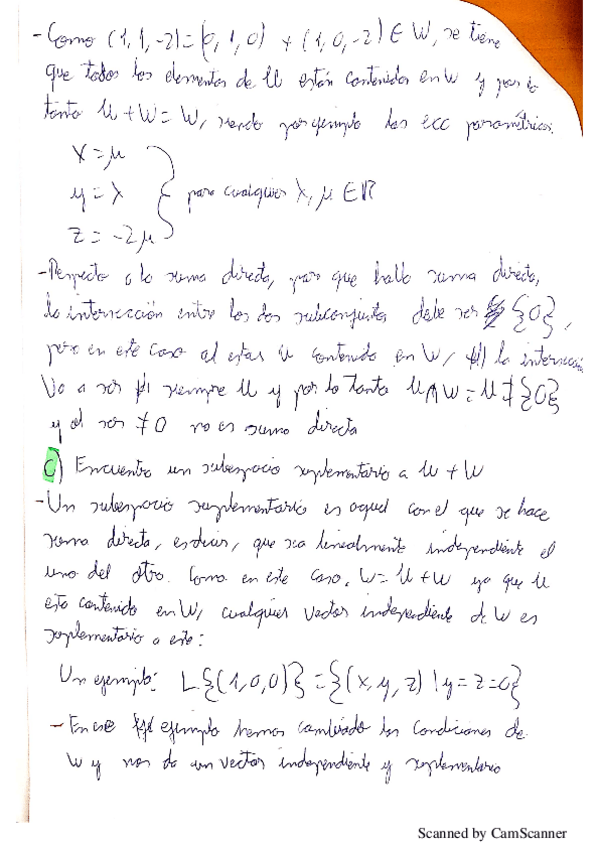 - Como (1,1,-2)=(0,1,0) + (1,0,-2) ∈ W, se tiene
que todos los elementos de U están contenidos en W y por lo
tanto U + W = W, siendo por ejemplo las ecc paramétricas:
x = μ
y = λ } para cualquier λ, μ ∈ ℝ
z = -2μ
- Respecto a la suma directa, para que halla suma directa,
la intersección entre los dos subconjuntos debe ser {0},
pero en este caso al estar U contenido en W, la intersección
va a ser siempre U y por lo tanto U∩W = U ≠ {0}
y al ser ≠ 0 no es suma directa
c) Encuentra un subespacio suplementario a U + W
- Un subespacio suplementario es aquel con el que se hace
suma directa, es decir, que sea linealmente independiente el
uno del otro. Como en este caso, W = U + W ya que U
esta contenido en W, cualquier vector independiente de W es
suplementario a este:
Un ejemplo: L{(1,0,0)} = {(x,y,z) | y=z=0}
- En ese ejemplo hemos cambiado las condiciones de
W y nos da un vector independiente y suplementario
Scanned by CamScanner